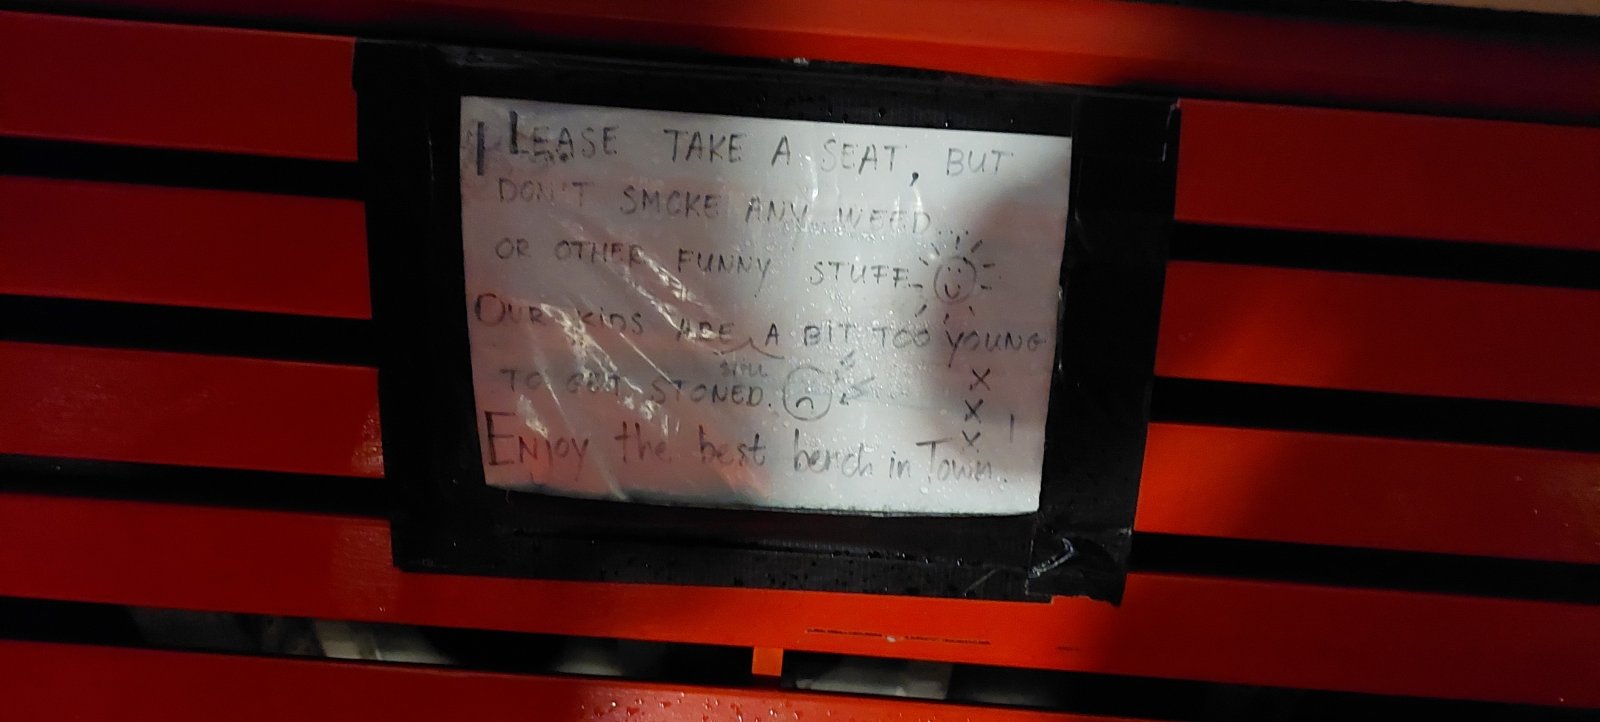 PLEASE TAKE A SEAT, BUT
DON'T SMOKE ANY WEED
OR OTHER FUNNY STUFF
OUR KIDS ARE A BIT TOO YOUNG
still
TO GET STONED.
Enjoy the best bench in Town.
X
X
X